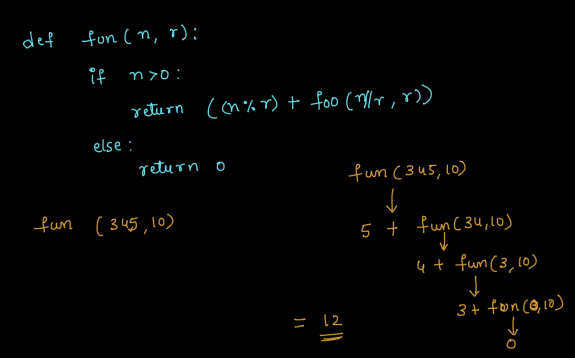 def fun(n, r):
if n>0:
return ((n%r) + foo(n//r, r))
else:
return 0
fun (345,10)
fun(345,10)
↓
5 + fun(34,10)
↓
4 + fun(3,10)
↓
3 + fun(0,10)
↓
0
= 12